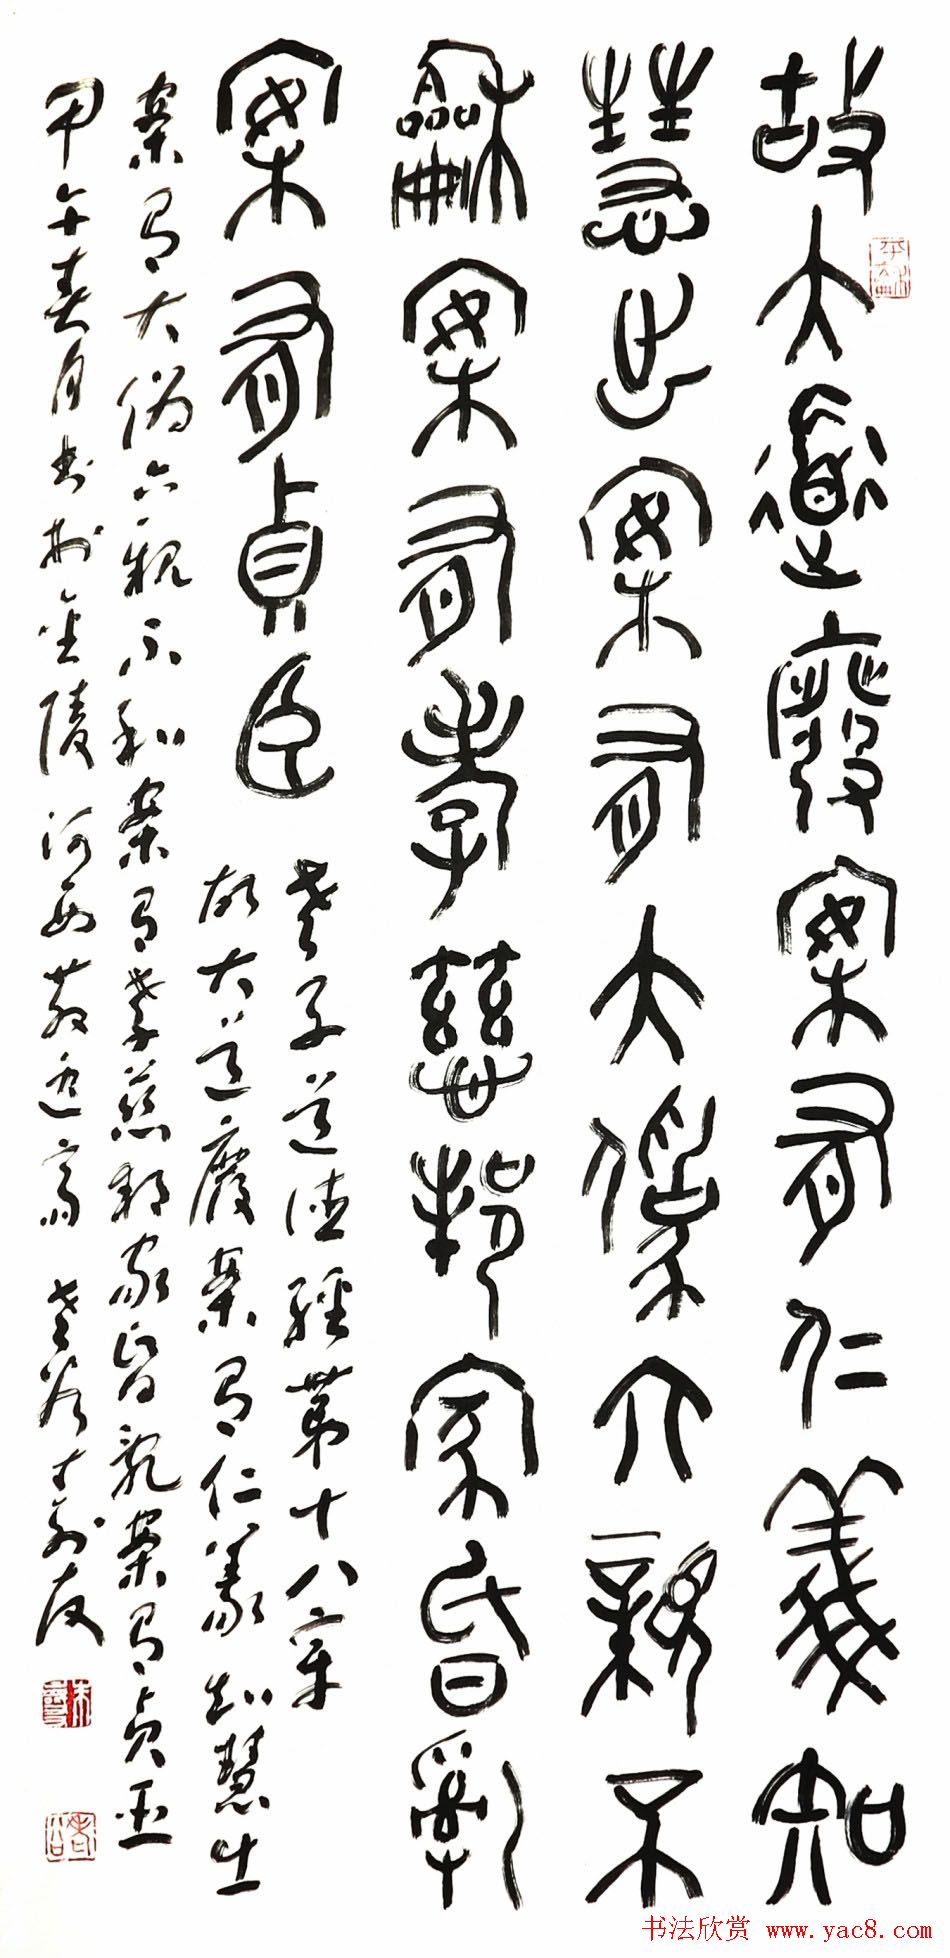 故大道廢案有仁義知
慧出案有大偽六親不
龢案有孝慈邦家昏亂
案有貞臣
老子道德經第十八章
故大道廢案有仁義知慧出
案有大偽六親不和案有孝慈邦家昏亂案有貞臣
甲午春月書於金陵河西 老谷朱壽友
书法欣赏 www.yac8.com